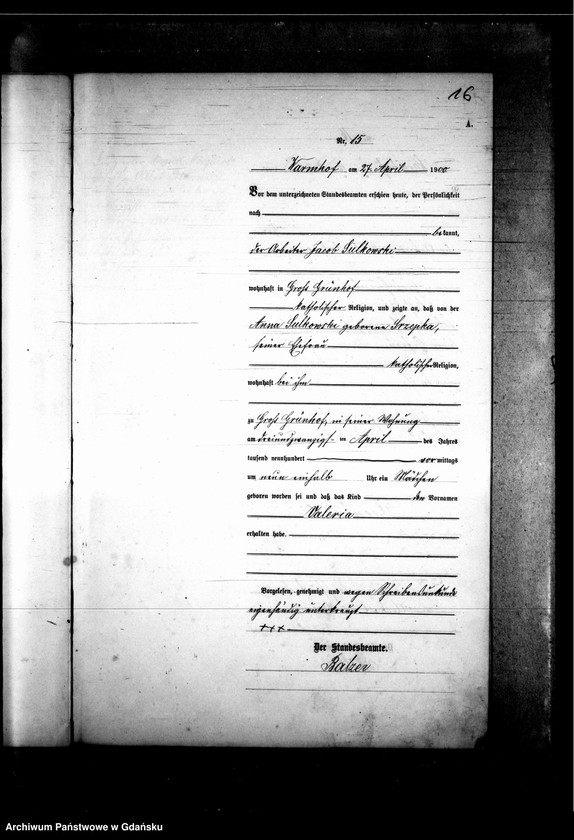 16
A.
Nr. 15
Warmhof am 27 April 1900
Vor dem unterzeichneten Standesbeamten erschien heute, der Persönlichkeit
nach
bekannt,
der Arbeiter Jacob Sulkowski
wohnhaft in Groß Grünhof
katholischer Religion, und zeigte an, daß von der
Anna Sulkowski geborene Srzepka,
seiner Ehefrau
katholischer Religion,
wohnhaft bei ihm
zu Groß Grünhof, in seiner Wohnung
am dreiundzwanzigsten April des Jahres
tausend neunhundert vormittags
um neun einhalb Uhr ein Mädchen
geboren worden sei und daß das Kind den Vornamen
Valeria
erhalten habe.
Vorgelesen, genehmigt und wegen Schreibensunkunde
eigenhändig unterkreuzt
+++
Der Standesbeamte.
Balzer
Archiwum Państwowe w Gdańsku